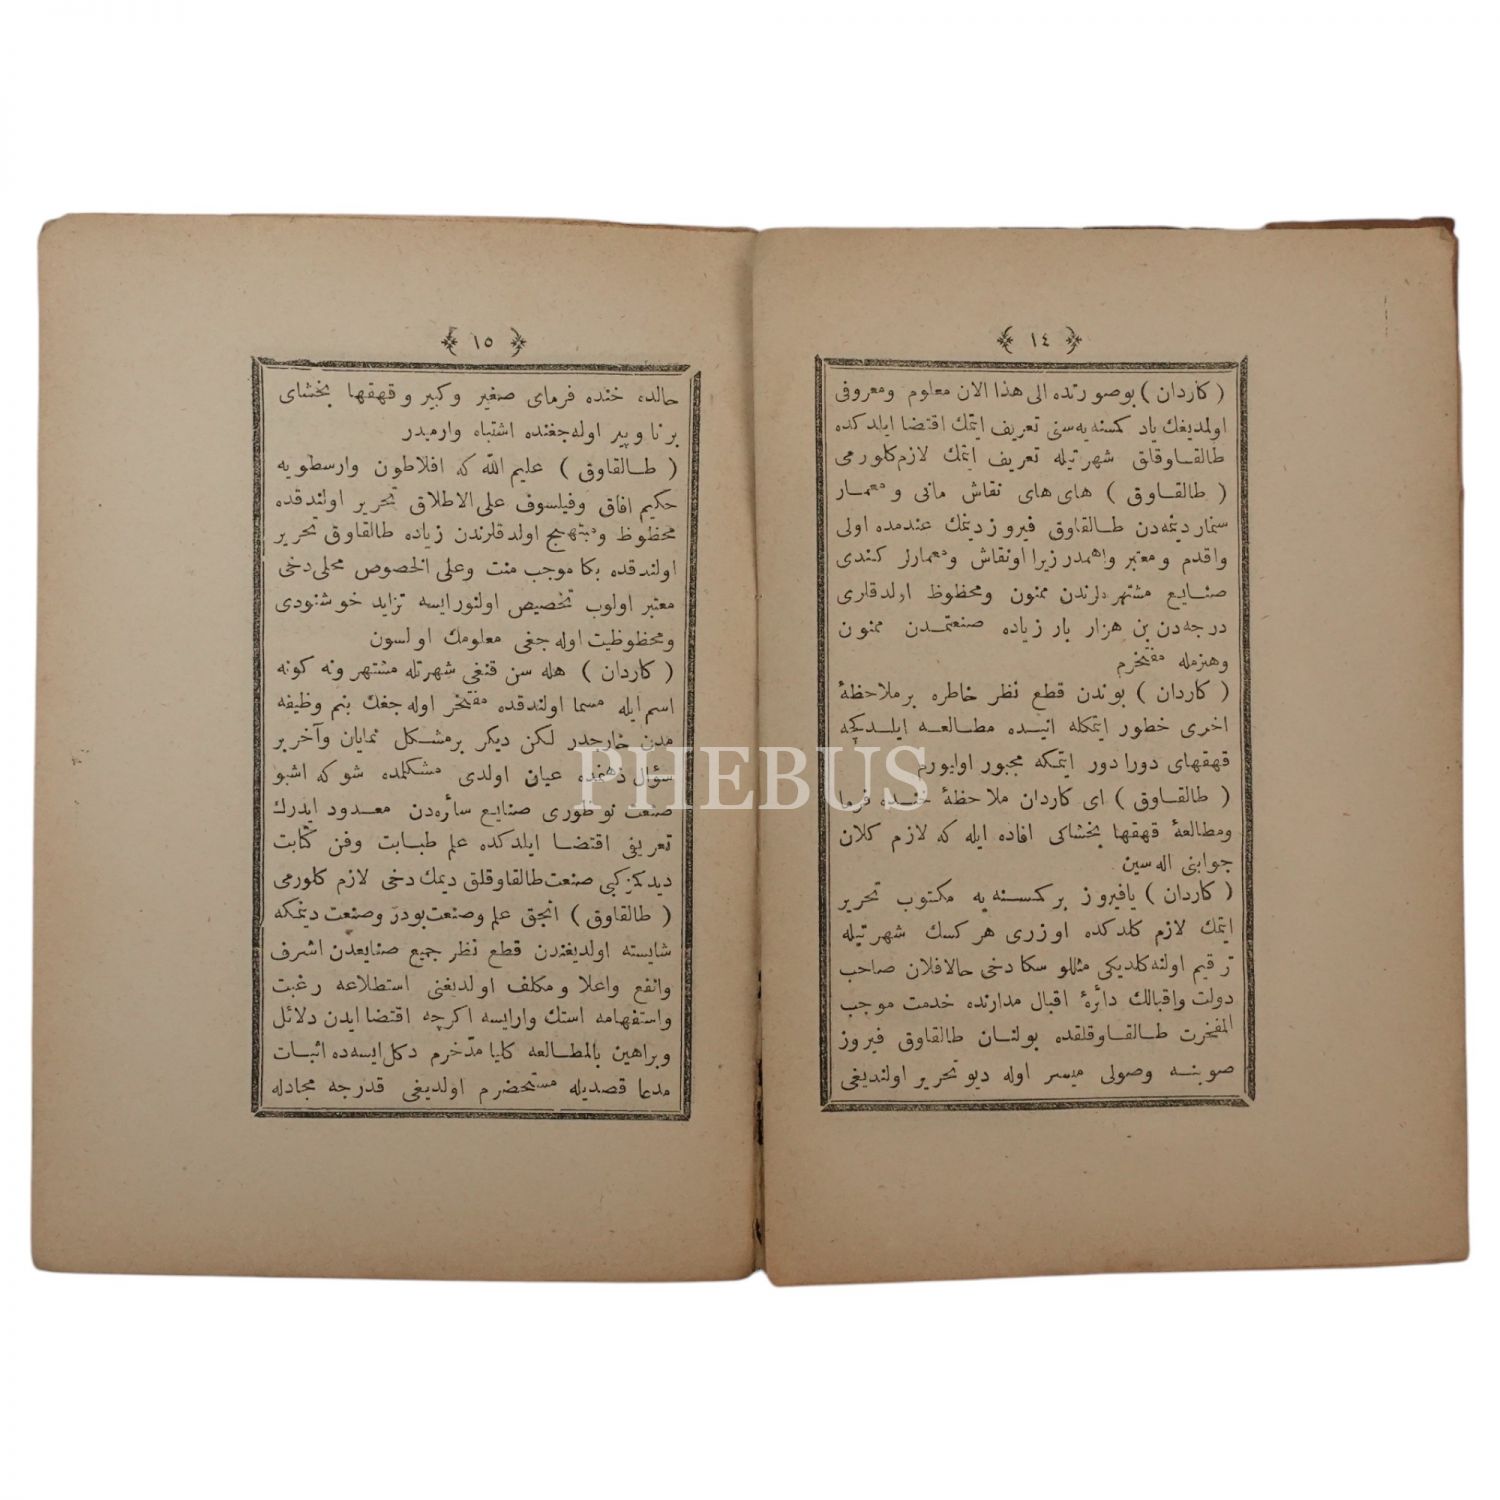 ١٤
( كاردان ) بوصورتده الى هذا الان معلوم ومعروفى
اولمديغك ياد كمسنه يه سنى تعريف ايتمك اقتضا ايلدكده
طالقاوقلق شهرتيله تعريف ايتمك لازم كلورمى
( طالقاوق ) هاى هاى نقاش مانى ومعمار
سنمار ديتمه دن طالقاوق فيروز ديتمك عندمده اولى
واقدم ومعتبر واهمدر زيرا اونقاش ومعمارلر كندى
صنايع مشتهره لرندن ممنون ومحظوظ اولدقلرى
درجه دن بن هزار بار زياده صنعتمدن ممنون
وهنرمله مفتخرم
( كاردان ) بوندن قطع نظر خاطره بر ملاحظهٔ
اخرى خطور ايتمكله انيده مطالعه ايلدكجه
قهقهاى دورا دور ايتمكه مجبور اوليورم
( طالقاوق ) اى كاردان ملاحظهٔ خنده فرما
ومطالعهٔ قهقها بخشاكى افاده ايله كه لازم كلان
جوابنى اله سين
( كاردان ) يافيروز بر كمسنه يه مكتوب تحرير
ايتمك لازم كلدكده اوزرى هركسك شهرتيله
ترقيم اولنه كلديكى مثللو سكا دخى حالا فلان صاحب
دولت واقبالك دائرهٔ اقبال مدارنده خدمت موجب
المفخرت طالقاوقلقده بولنان طالقاوق فيروز
صوبنه وصولى ميسر اوله ديو تحرير اولنديغى
١٥
حالده خنده فرماى صغير وكبير وقهقها بخشاى
برنا وپير اوله جغنده اشتباه وارميدر
( طالقاوق ) عليم الله كه افلاطون وارسطويه
حكيم افاق وفيلسوف على الاطلاق تحرير اولندقده
محظوظ ومبتهج اولدقلرندن زياده طالقاوق تحرير
اولندقده بكا موجب منت وعلى الخصوص محلى دخى
معتبر اولوب تخصيص اولنورايسه تزايد خوشنودى
ومحظوظيت اوله جغى معلومك اولسون
( كاردان ) هله سن قنغى شهرتله مشتهر ونه كونه
اسم ايله مسما اولندقده مفتخر اوله جغك بنم وظيفه
مدن خارجدر لكن ديكر بر مشكل نمايان وآخر بر
سؤال ذهنمده عيان اولدى مشكلمده شو كه اشبو
صنعت نوطورى صنايع سائره دن معدود ايدرك
تعريفى اقتضا ايلدكده علم طبابت وفن كتابت
ديدكمز كبى صنعت طالقاوقلق ديمك دخى لازم كلورمى
( طالقاوق ) انجق علم وصنعت بودر وصنعت ديتمكه
شايسته اولديغندن قطع نظر جميع صنايعدن اشرف
وانفع واعلا ومكلف اولديغنى استطلاعه رغبت
واستفهامه استك وارايسه اكرچه اقتضا ايدن دلائل
وبراهين بالمطالعه كليا مدّخرم دكل ايسه ده اثبات
مدعا قصديله مستحضرم اولديغى قدرجه مجادله
PHEBUS